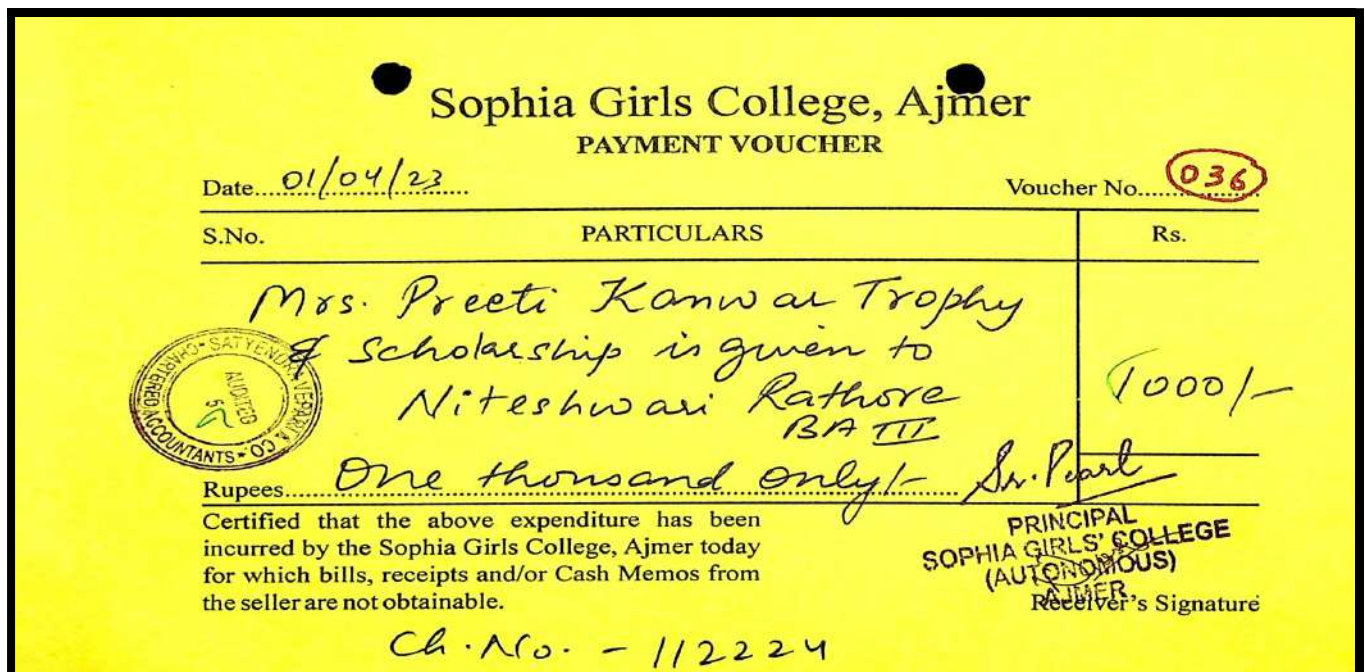 Sophia Girls College, Ajmer
PAYMENT VOUCHER
Date....01/04/23.... Voucher No....036....
S.No. PARTICULARS Rs.
Mrs. Preeti Kanwar Trophy
& Scholarship is given to
Niteshwari Rathore
BA III
1000/-
CHARTERED ACCOUNTANTS
AUDITED
Rupees....One thousand only/-.... Sr. Pearl
Certified that the above expenditure has been
incurred by the Sophia Girls College, Ajmer today
for which bills, receipts and/or Cash Memos from
the seller are not obtainable.
PRINCIPAL
SOPHIA GIRLS' COLLEGE
(AUTONOMOUS)
AJMER
Receiver's Signature
Ch. No. - 112224